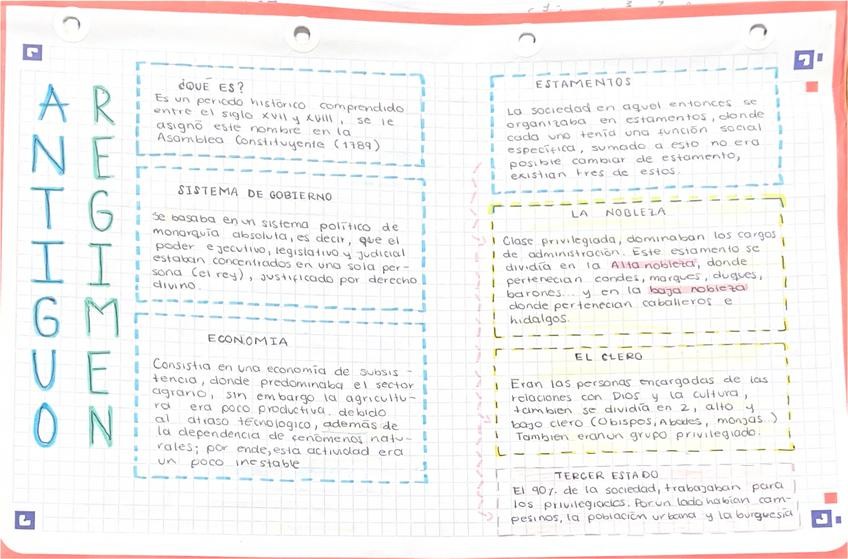 ANTIGUO
REGIMEN
¿QUÉ ES?
Es un periodo histórico comprendido
entre el siglo XVII y XVIII, se le
asignó este nombre en la
Asamblea Constituyente (1789)
SISTEMA DE GOBIERNO
Se basaba en un sistema político de
monarquía absoluta, es decir, que el
poder ejecutivo, legislativo y judicial
estaban concentrados en una sola per-
sona (el rey), justificado por derecho
divino.
ECONOMIA
Consistia en una economía de subsis -
tencia, donde predominaba el sector
agrario, sin embargo la agricultu-
ra era poco productiva. debido
al atraso tecnologico, además de
la dependencia de fenómenos natu-
rales; por ende, esta actividad era
un poco inestable
ESTAMENTOS
La sociedad en aquel entonces se
organizaba en estamentos, donde
cada uno tenía una función social
específica, sumado a esto no era
posible cambiar de estamento,
existian tres de estos.
LA NOBLEZA
Clase privilegiada, dominaban los cargos
de administración. Este estamento se
dividía en la Alta nobleza, donde
pertenecian condes, marques, duques,
barones... y en la baja nobleza
donde pertenecian caballeros e
hidalgos.
EL CLERO
Eran las personas encargadas de las
relaciones con Dios y la cultura,
tambien se dividía en 2, alto y
bajo clero (Obispos, Abades, monjas.)
Tambien eran un grupo privilegiado.
TERCER ESTADO
El 90% de la sociedad, trabajaban para
los privilegiados. Por un lado habían cam-
pesinos, la población urbana y la burguesía